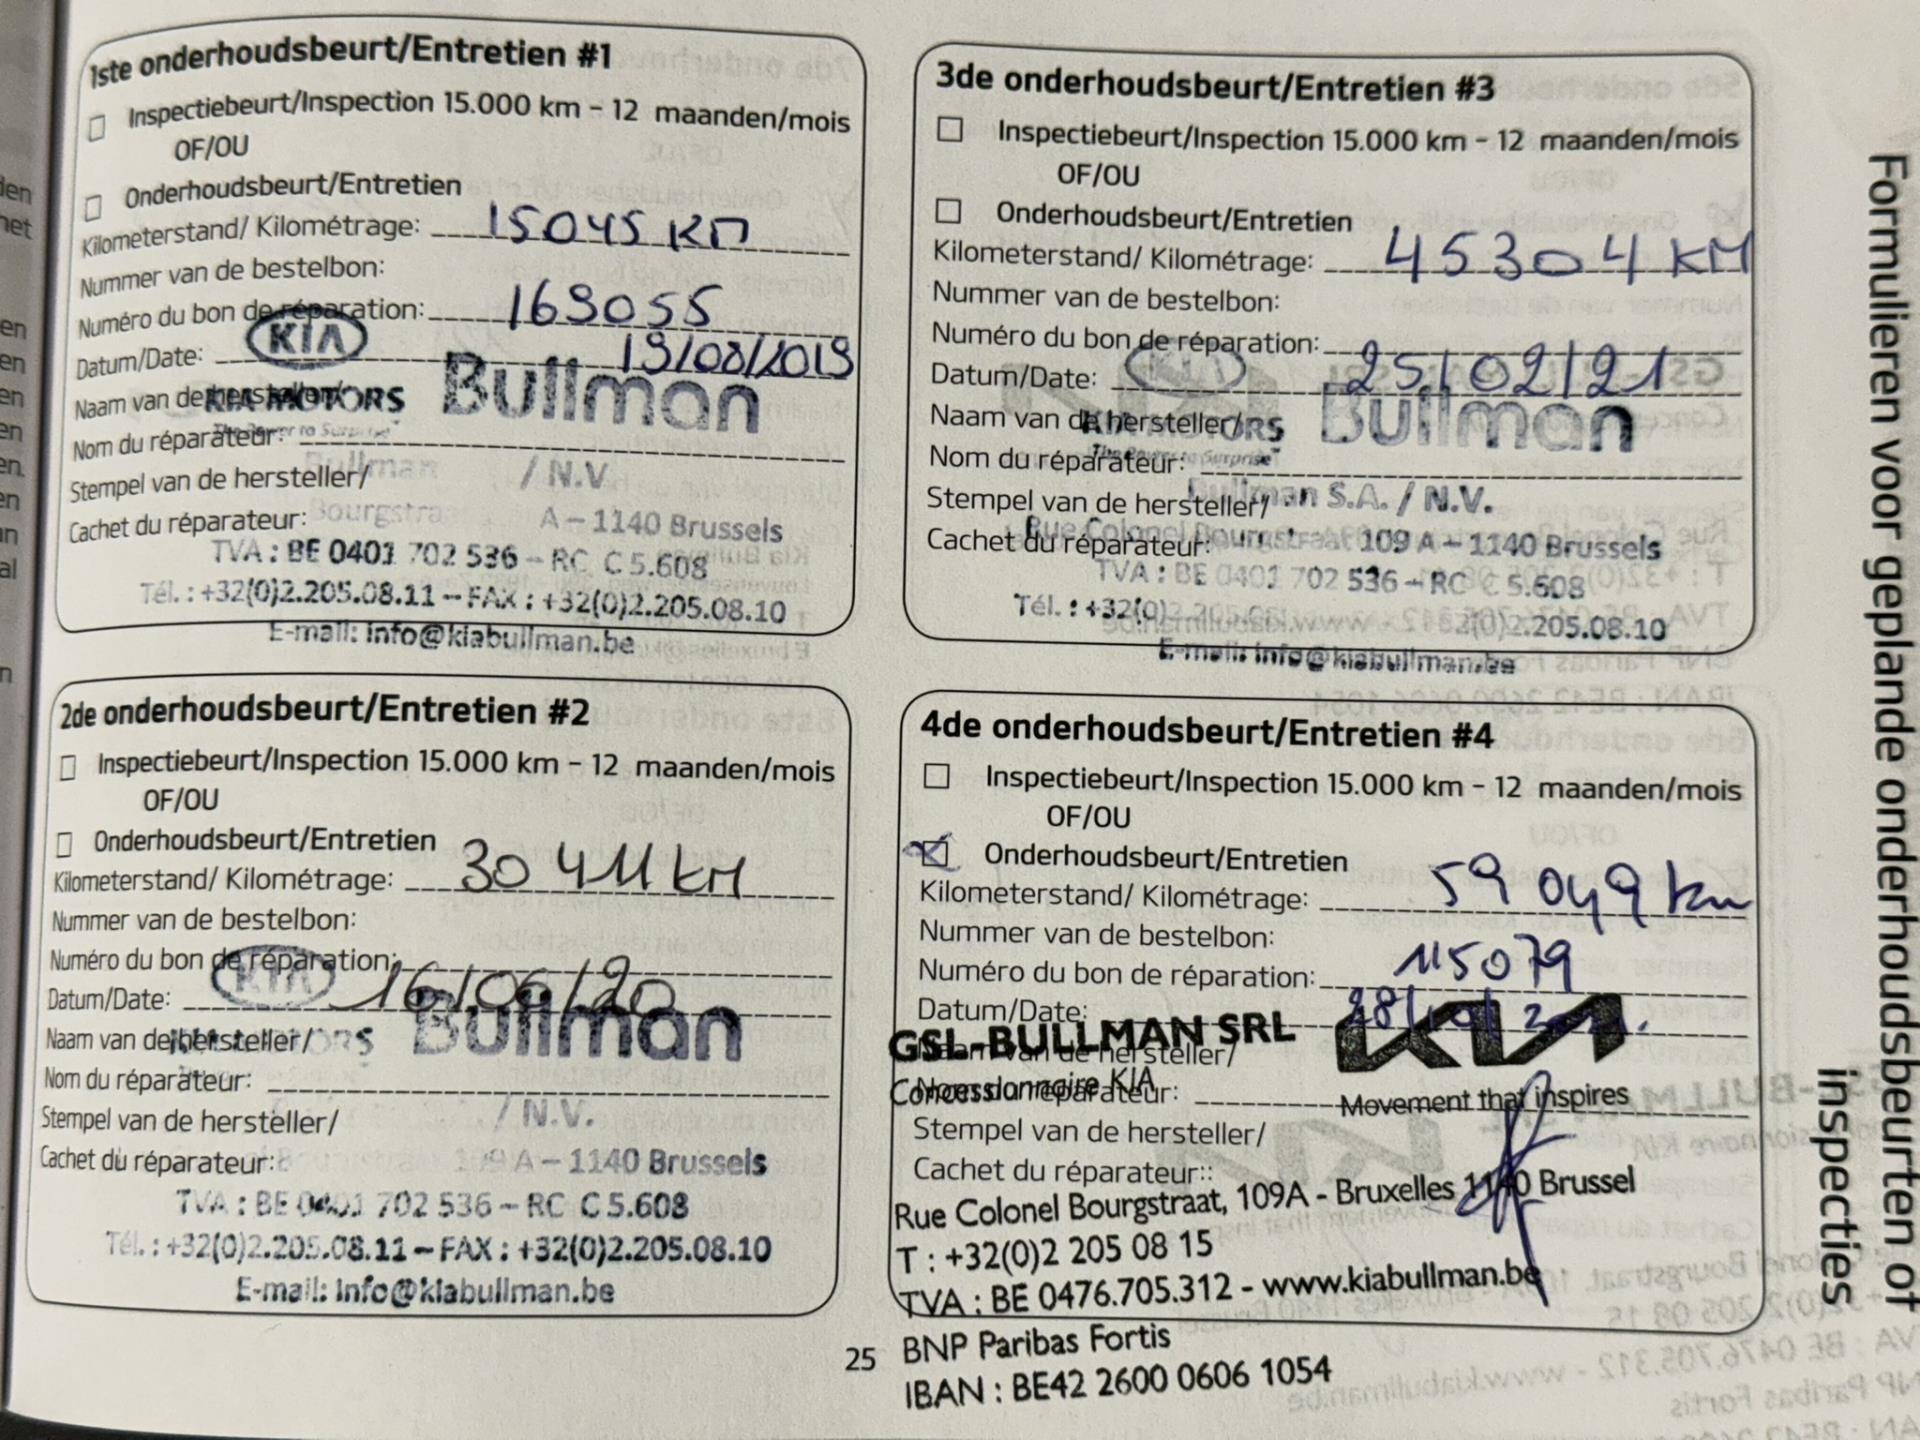 1ste onderhoudsbeurt/Entretien #1
Inspectiebeurt/Inspection 15.000 km - 12 maanden/mois
OF/OU
Onderhoudsbeurt/Entretien
Kilometerstand/ Kilométrage: 15045 KM
Nummer van de bestelbon:
Numéro du bon de réparation: 169055
Datum/Date: 19/08/2019
KIA
Naam van de hersteller/
KIA MOTORS Bullman
The Power to Surprise
Nom du réparateur:
Bullman / N.V.
Stempel van de hersteller/
Cachet du réparateur:
A - 1140 Brussels
TVA : BE 0401 702 536 - RC C 5.608
Tél. : +32(0)2.205.08.11 - FAX : +32(0)2.205.08.10
E-mail: info@kiabullman.be
2de onderhoudsbeurt/Entretien #2
Inspectiebeurt/Inspection 15.000 km - 12 maanden/mois
OF/OU
Onderhoudsbeurt/Entretien
Kilometerstand/ Kilométrage: 30 411 kM
Nummer van de bestelbon:
Numéro du bon de réparation:
Datum/Date: 16/06/20
KIA
Naam van de hersteller/
Bullman
Nom du réparateur:
/ N.V.
Stempel van de hersteller/
Cachet du réparateur:
109 A - 1140 Brussels
TVA : BE 0401 702 536 - RC C 5.608
Tél. : +32(0)2.205.08.11 - FAX : +32(0)2.205.08.10
E-mail: info@kiabullman.be
3de onderhoudsbeurt/Entretien #3
Inspectiebeurt/Inspection 15.000 km - 12 maanden/mois
OF/OU
Onderhoudsbeurt/Entretien
Kilometerstand/ Kilométrage: 45304 KM
Nummer van de bestelbon:
Numéro du bon de réparation:
Datum/Date: 25/02/21
KIA
Naam van de hersteller/
KIA MOTORS Bullman
The Power to Surprise
Nom du réparateur:
Bullman S.A. / N.V.
Stempel van de hersteller/
Cachet du réparateur:
Rue Colonel Bourgstraat 109 A - 1140 Brussels
TVA : BE 0401 702 536 - RC C 5.608
Tél. : +32(0)2.205.08.10
E-mail: info@kiabullman.be
4de onderhoudsbeurt/Entretien #4
Inspectiebeurt/Inspection 15.000 km - 12 maanden/mois
OF/OU
Onderhoudsbeurt/Entretien
Kilometerstand/ Kilométrage: 59 049 km
Nummer van de bestelbon:
Numéro du bon de réparation: 115079
Datum/Date:
GSL-BULLMAN SRL KIA
Naam van de hersteller/
Concessionnaire KIA
Nom du réparateur:
Movement that inspires
Stempel van de hersteller/
Cachet du réparateur::
Rue Colonel Bourgstraat, 109A - Bruxelles 1140 Brussel
T : +32(0)2 205 08 15
TVA : BE 0476.705.312 - www.kiabullman.be
BNP Paribas Fortis
IBAN : BE42 2600 0606 1054
25
Formulieren voor geplande onderhoudsbeurten of
inspecties